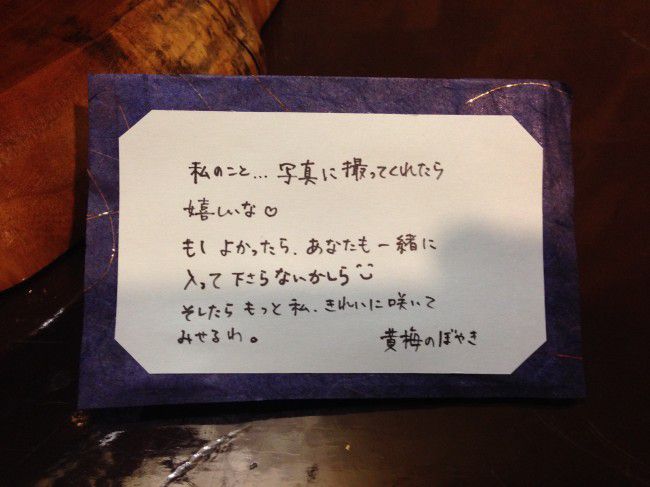 私のこと…写真に撮ってくれたら
嬉しいな♡
もし よかったら、あなたも一緒に
入って下さらないかしら
そしたら もっと 私、きれいに咲いて
みせるわ。 黄梅のぼやき